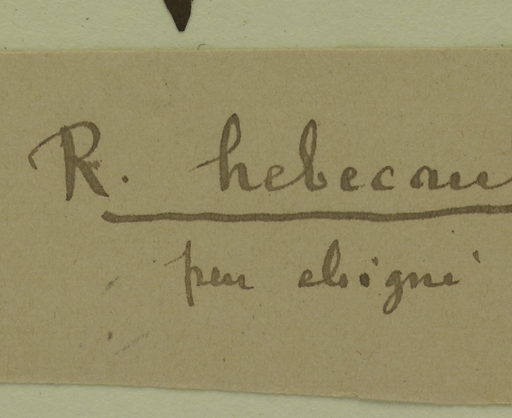 R. hebecau
peu eloigné